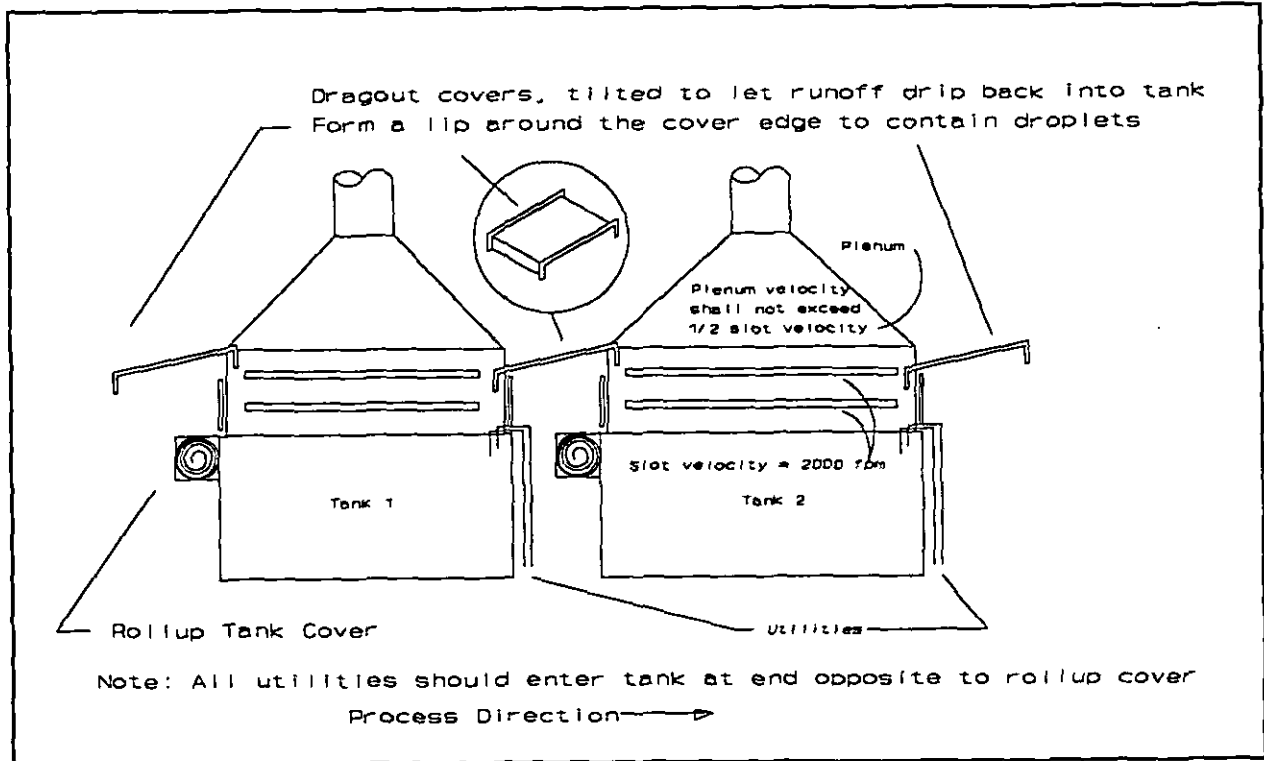 Dragout covers, tilted to let runoff drip back into tank
Form a lip around the cover edge to contain droplets
Plenum
Plenum velocity
shall not exceed
1/2 slot velocity
Slot velocity = 2000 fpm
Tank 1
Tank 2
Rollup Tank Cover
Utilities
Note: All utilities should enter tank at end opposite to rollup cover
Process Direction